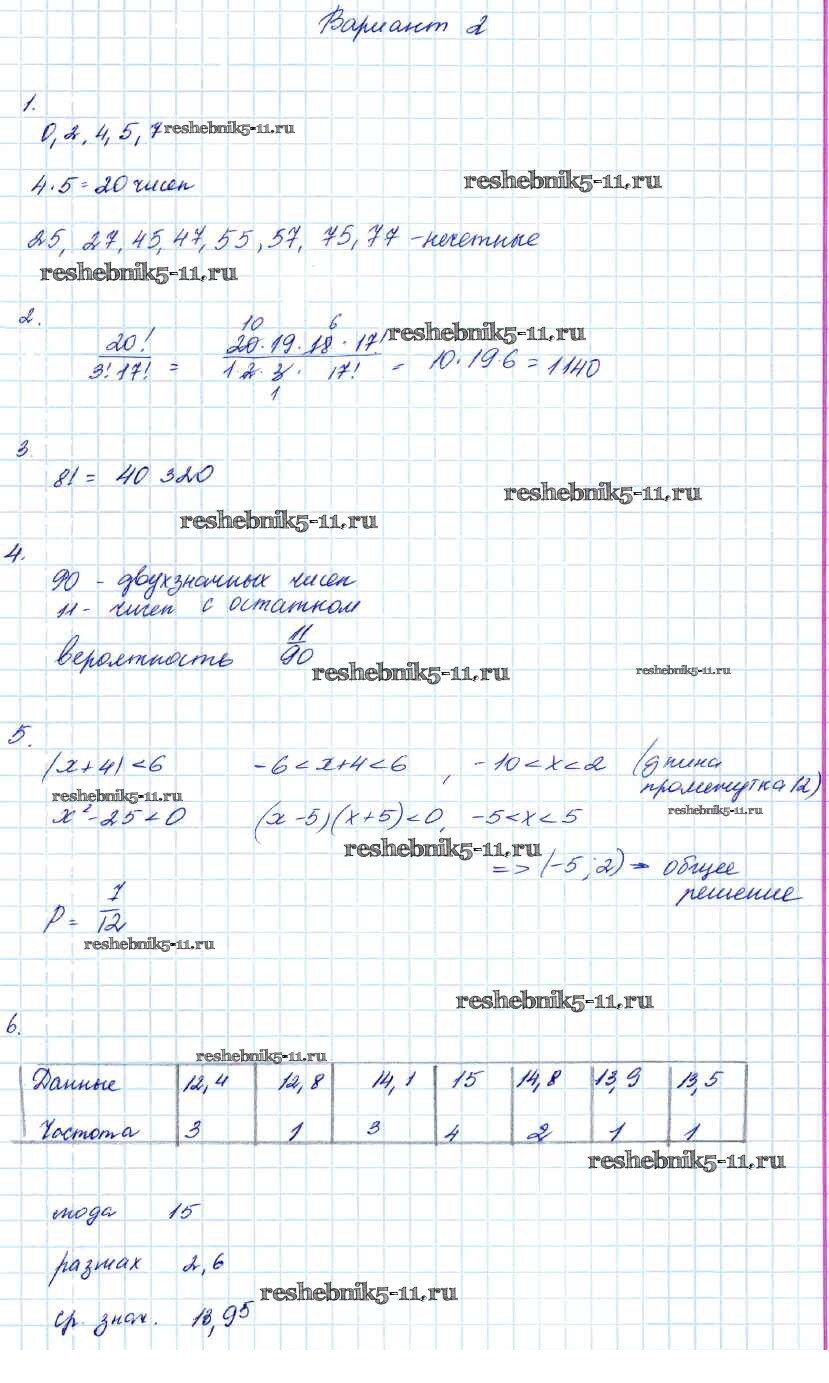 Вариант 2
1.
0, 2, 4, 5, 7 reshebnik5-11.ru
4·5=20 чисел
reshebnik5-11.ru
25, 27, 45, 47, 55, 57, 75, 77 - нечетные
reshebnik5-11.ru
2.
10 6
20!/3!17! = 20·19·18·17!/1·2·3·17! = 10·19·6 = 1140
1
reshebnik5-11.ru
3
8! = 40 320
reshebnik5-11.ru
reshebnik5-11.ru
4.
90 - двухзначных чисел
11 - чисел с остатком
вероятность 11/90
reshebnik5-11.ru
reshebnik5-11.ru
5.
|x+4|<6 -6<x+4<6, -10<x<2 (длина
промежутка 12)
reshebnik5-11.ru
reshebnik5-11.ru
x²-25<0 (x-5)(x+5)<0, -5<x<5
reshebnik5-11.ru
=> (-5; 2) - общее
решение
P = 7/12
reshebnik5-11.ru
reshebnik5-11.ru
6.
reshebnik5-11.ru
Данные 12,4 12,8 14,1 15 14,8 13,9 13,5
Частота 3 1 3 4 2 1 1
reshebnik5-11.ru
мода 15
размах 2,6
reshebnik5-11.ru
ср. знач. 13,95